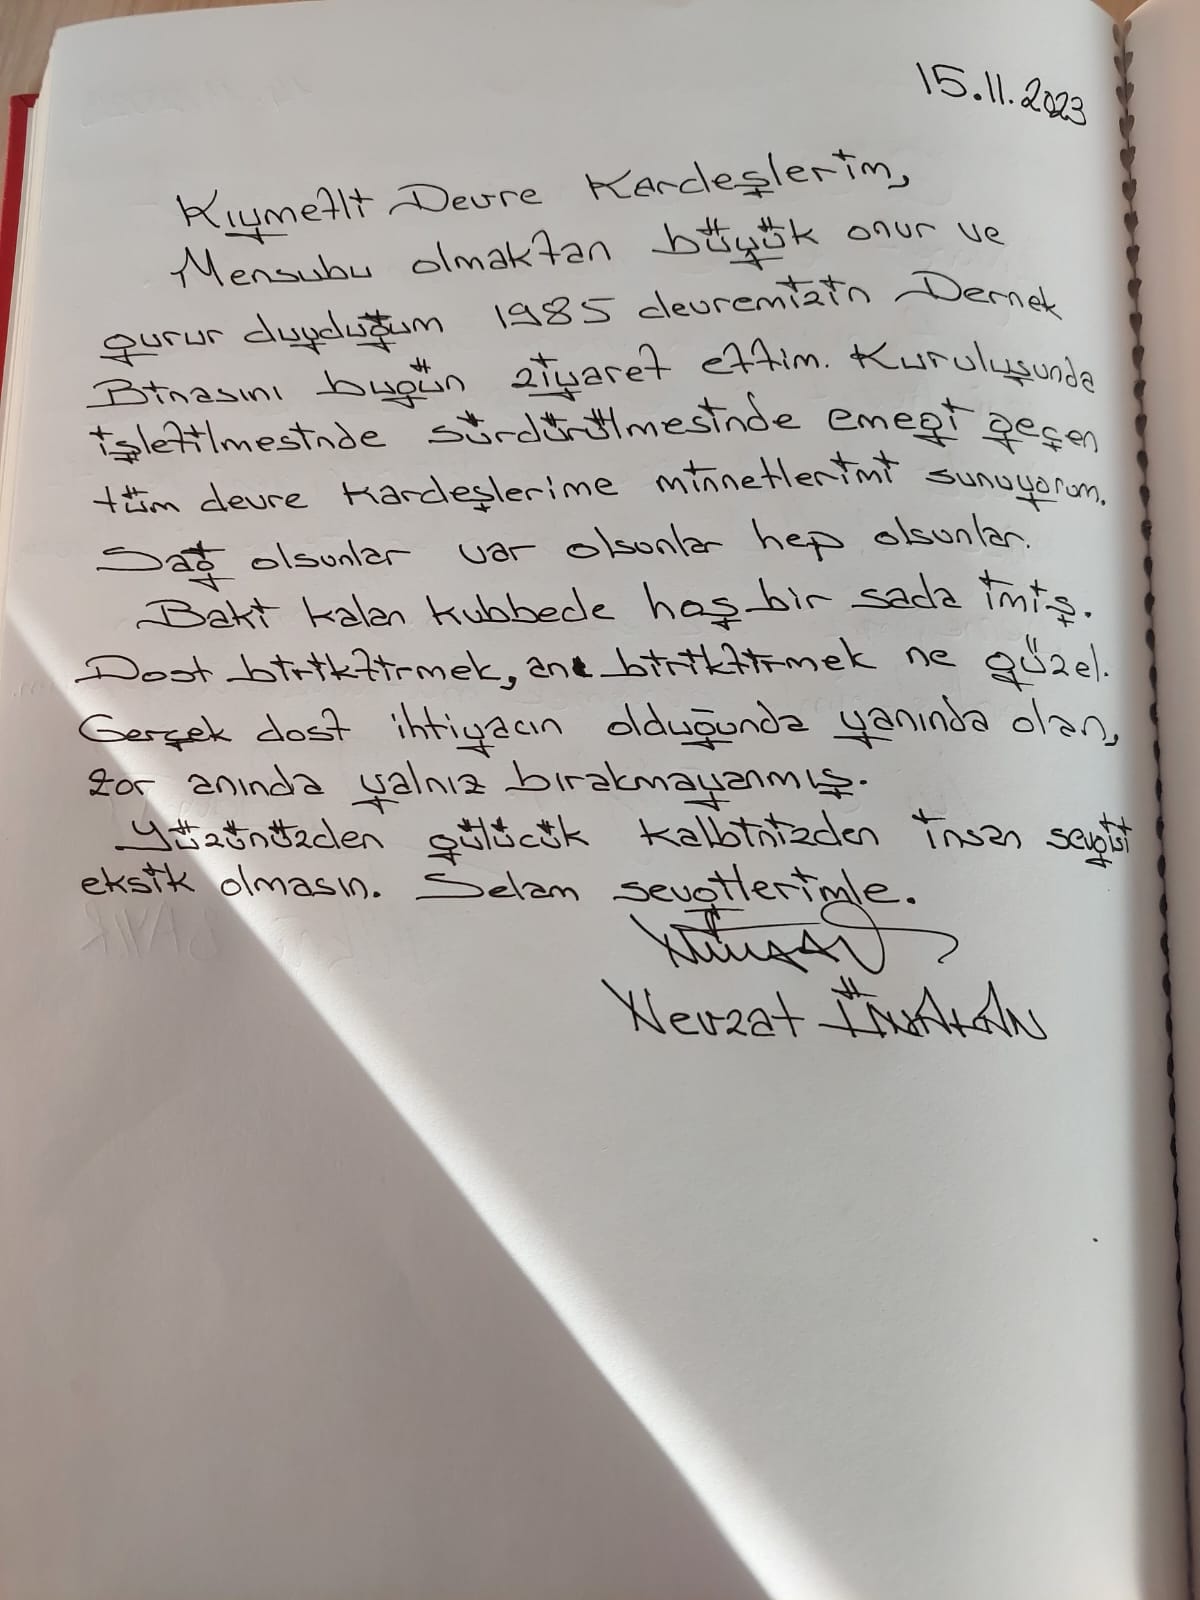 15.11.2023
Kıymetli Devre Kardeşlerim,
Mensubu olmaktan büyük onur ve
gurur duyduğum 1985 devremizin Dernek
Binasını bugün ziyaret ettim. Kuruluşunda
işletilmesinde sürdürülmesinde emeği geçen
tüm devre kardeşlerime minnetlerimi sunuyorum.
Sağ olsunlar var olsunlar hep olsunlar.
Baki kalan kubbede hoş bir sada imiş.
Dost biriktirmek, anı biriktirmek ne güzel.
Gerçek dost ihtiyacın olduğunda yanında olan,
zor anında yalnız bırakmayanmış.
Yüzünüzden gülücük kalbinizden insan sevgisi
eksik olmasın. Selam sevgilerimle.
Nevzat